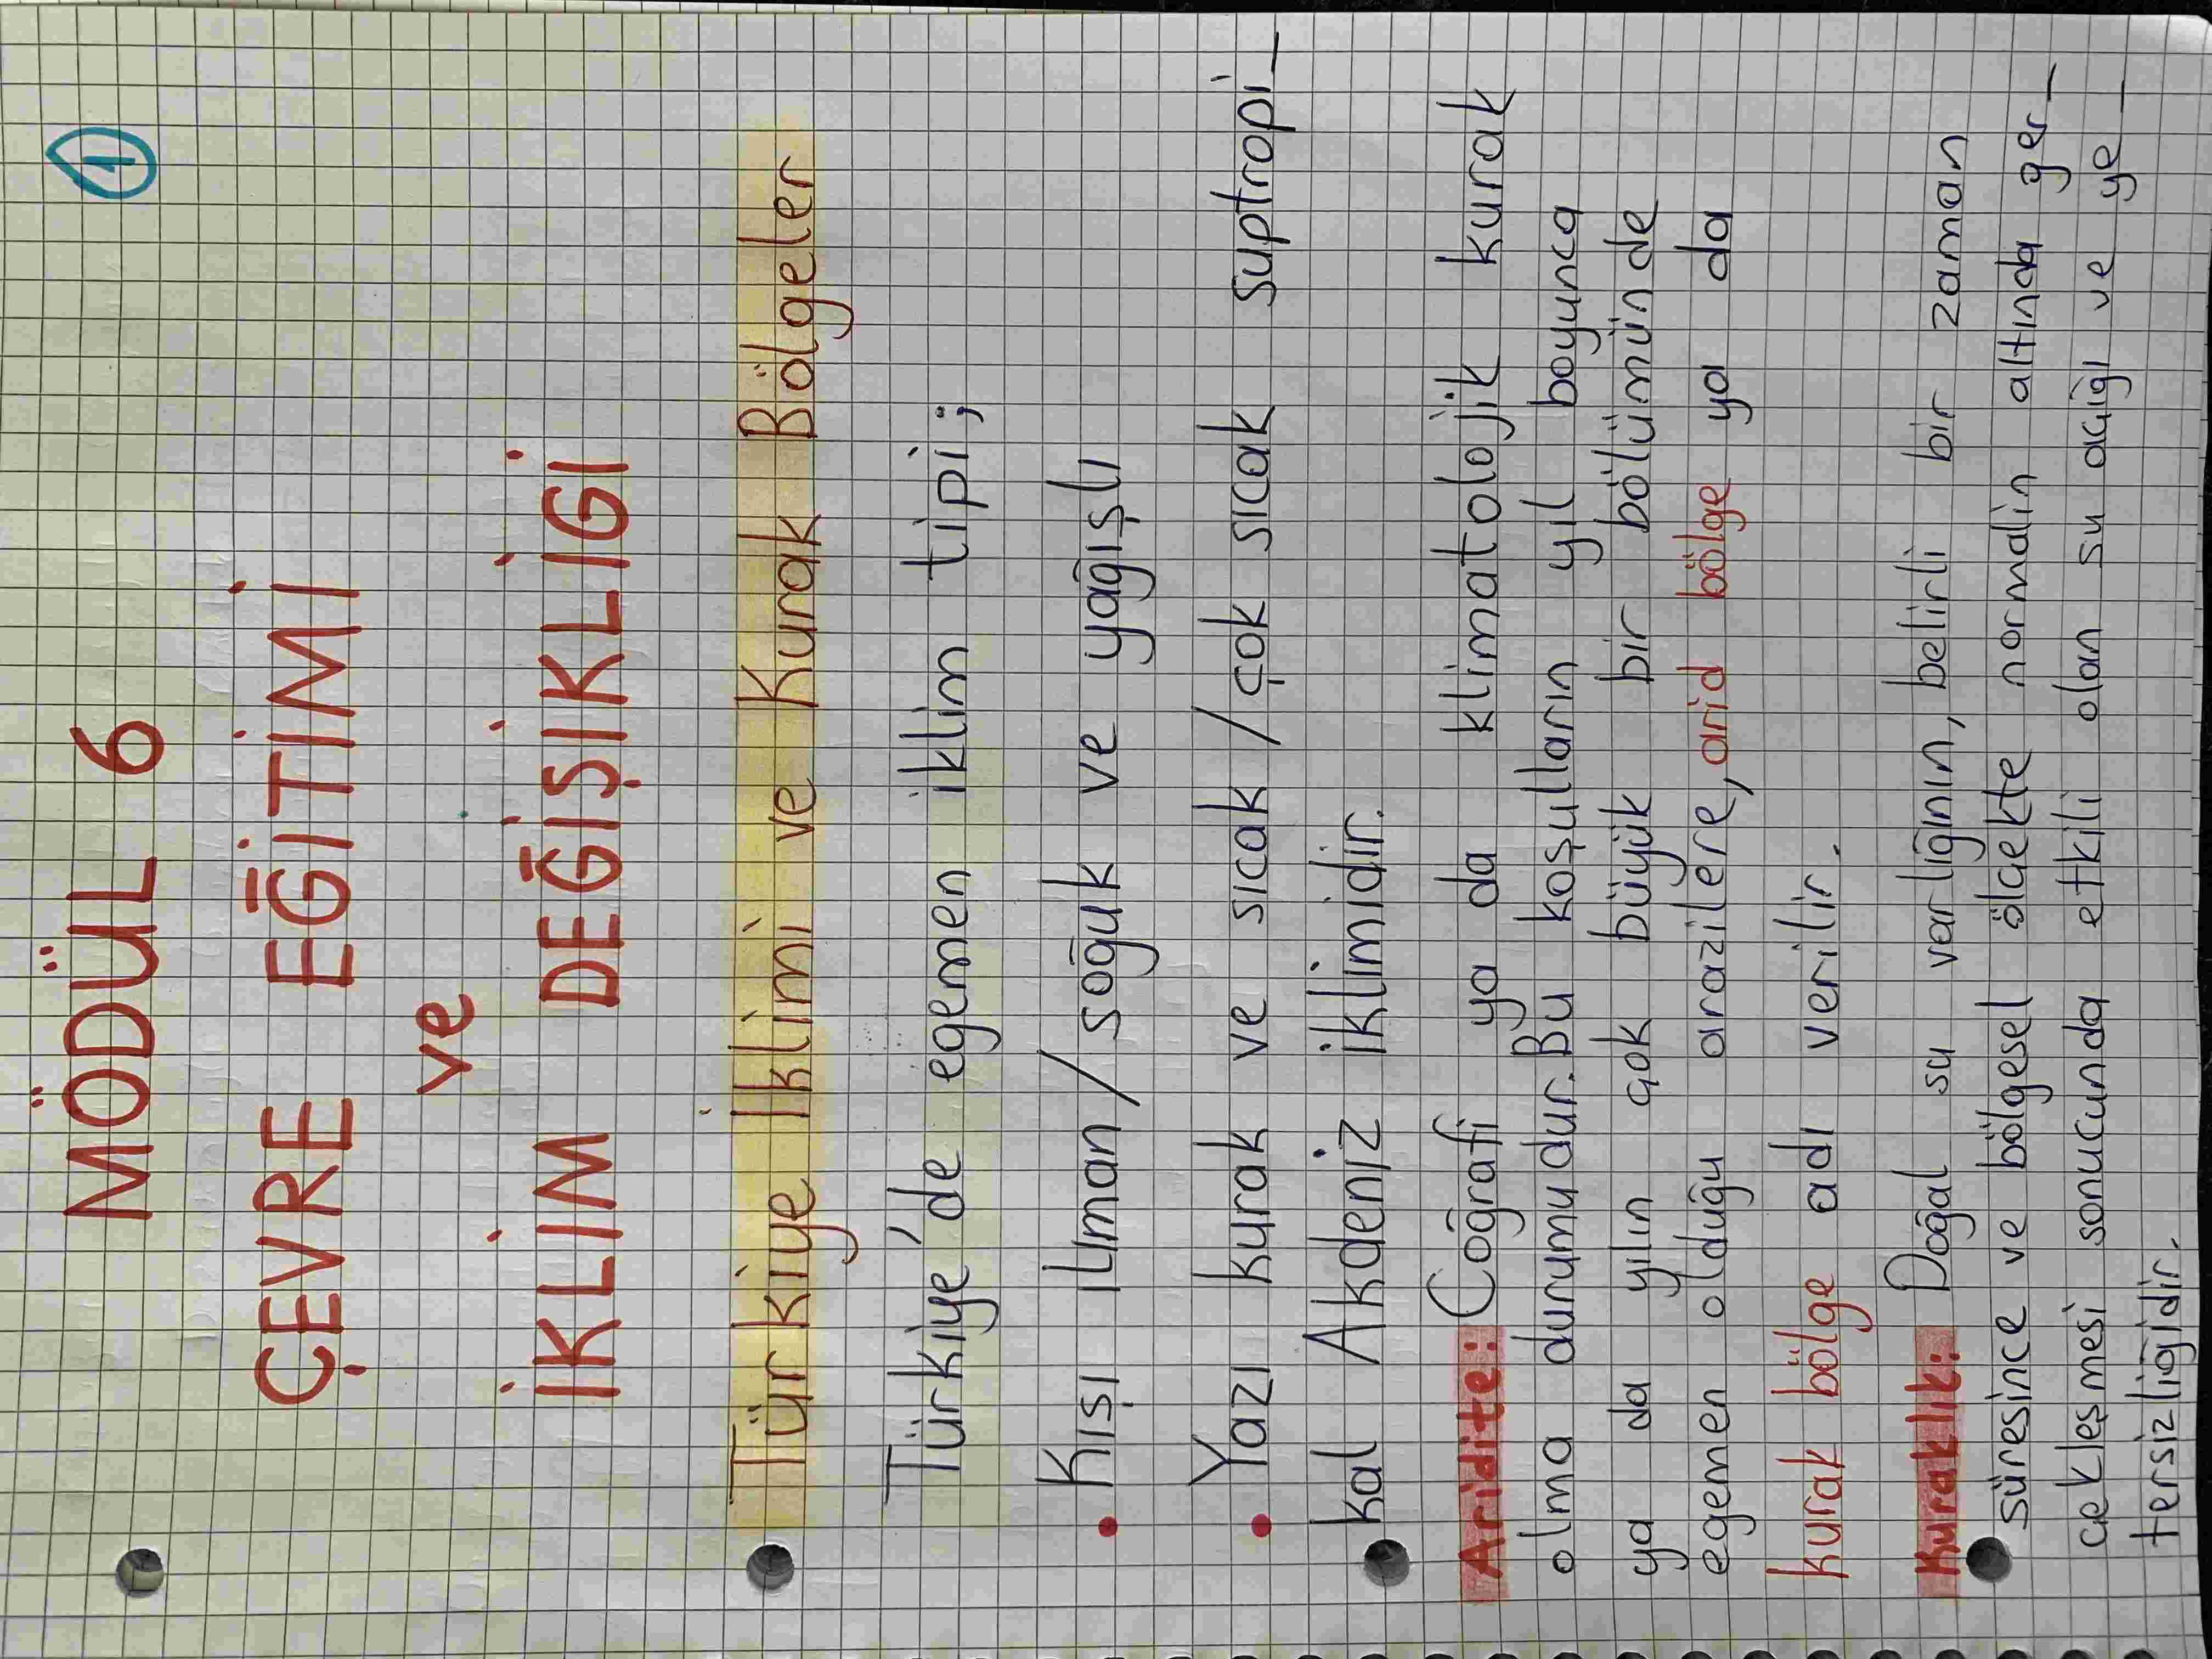 ①
MÖDÜL 6
ÇEVRE EĞİTİMİ
ve
İKLİM DEĞİŞİKLİĞİ
Türkiye İklimi ve Kurak Bölgeler
Türkiye'de egemen iklim tipi;
• Kışı ılıman / soğuk ve yağışlı
• Yazı kurak ve sıcak / çok sıcak suptropi_
kal Akdeniz iklimidir.
Aridite: Coğrafi ya da klimatolojik kurak
olma durumudur. Bu koşulların yıl boyunca
ya da yılın çok büyük bir bölümünde
egemen olduğu arazilere, arid bölge ya da
kurak bölge adı verilir.
Kuraklık: Doğal su varlığının, belirli bir zaman
süresince ve bölgesel ölçekte normalin altında ger_
çekleşmesi sonucunda etkili olan su açığı ve ye_
tersizliğidir.